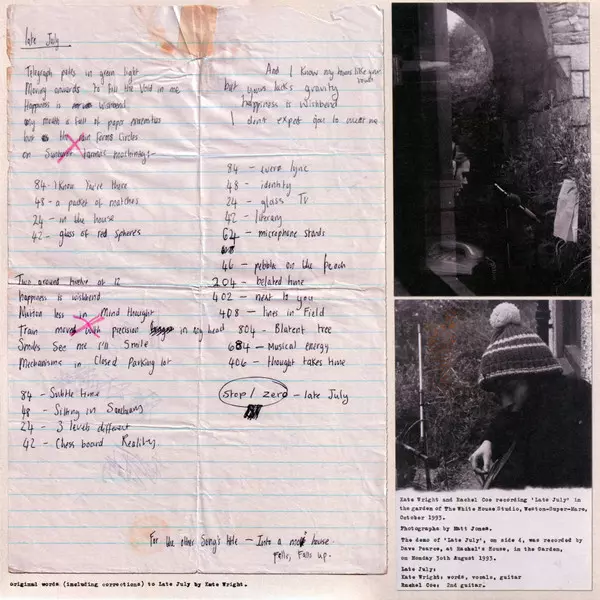 late July
Telegraph paths in green light
Moving onwards to fill the void in me
Happiness is Wishbend
my mouth a full of paper
but the rain forms Circles
on
84 - I Know You're there
48 - a packet of matches
24 - in the house
42 - glass of red spheres
Two around twelve at 12
happiness is wishbend
loss in Mind thought
Train moved with precision in my head
Smiles See me I'll Smile
Mechanisms in Closed Parking lot
84 - Subtle time
48 - Sitting in
24 - 3 levels different
42 - Chess board Reality
And I know my towns like your
but your lacks gravity
happiness is wishbend
I don't expect you to
84 - lyric
48 - identity
24 - glass TV
42 - literary
64 - microphone stands
46 - pebble on the beach
204 - belated time
402 - next to you
408 - lines in Field
804 - Blatent tree
684 - Musical energy
406 - thought takes time
Stop / zero - late July
For the other Song's title - Into a house
Falls up.
original words (including corrections) to Late July by Kate Wright.
Kate Wright and Rachel Coe recording 'Late July' in
the garden of The White House Studio, Weston-Super-Mare,
October 1993.
Photographs by Matt Jones.
The demo of 'Late July', on side 4, was recorded by
Dave Pearce, at Rachel's House, in the Garden,
on Monday 30th August 1993.
Late July:
Kate Wright: words, vocals, guitar
Rachel Coe: 2nd guitar.